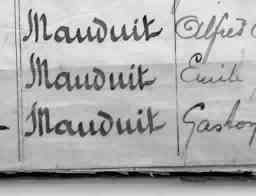 Mauduit Alfred
Mauduit Emile
Mauduit Gaston